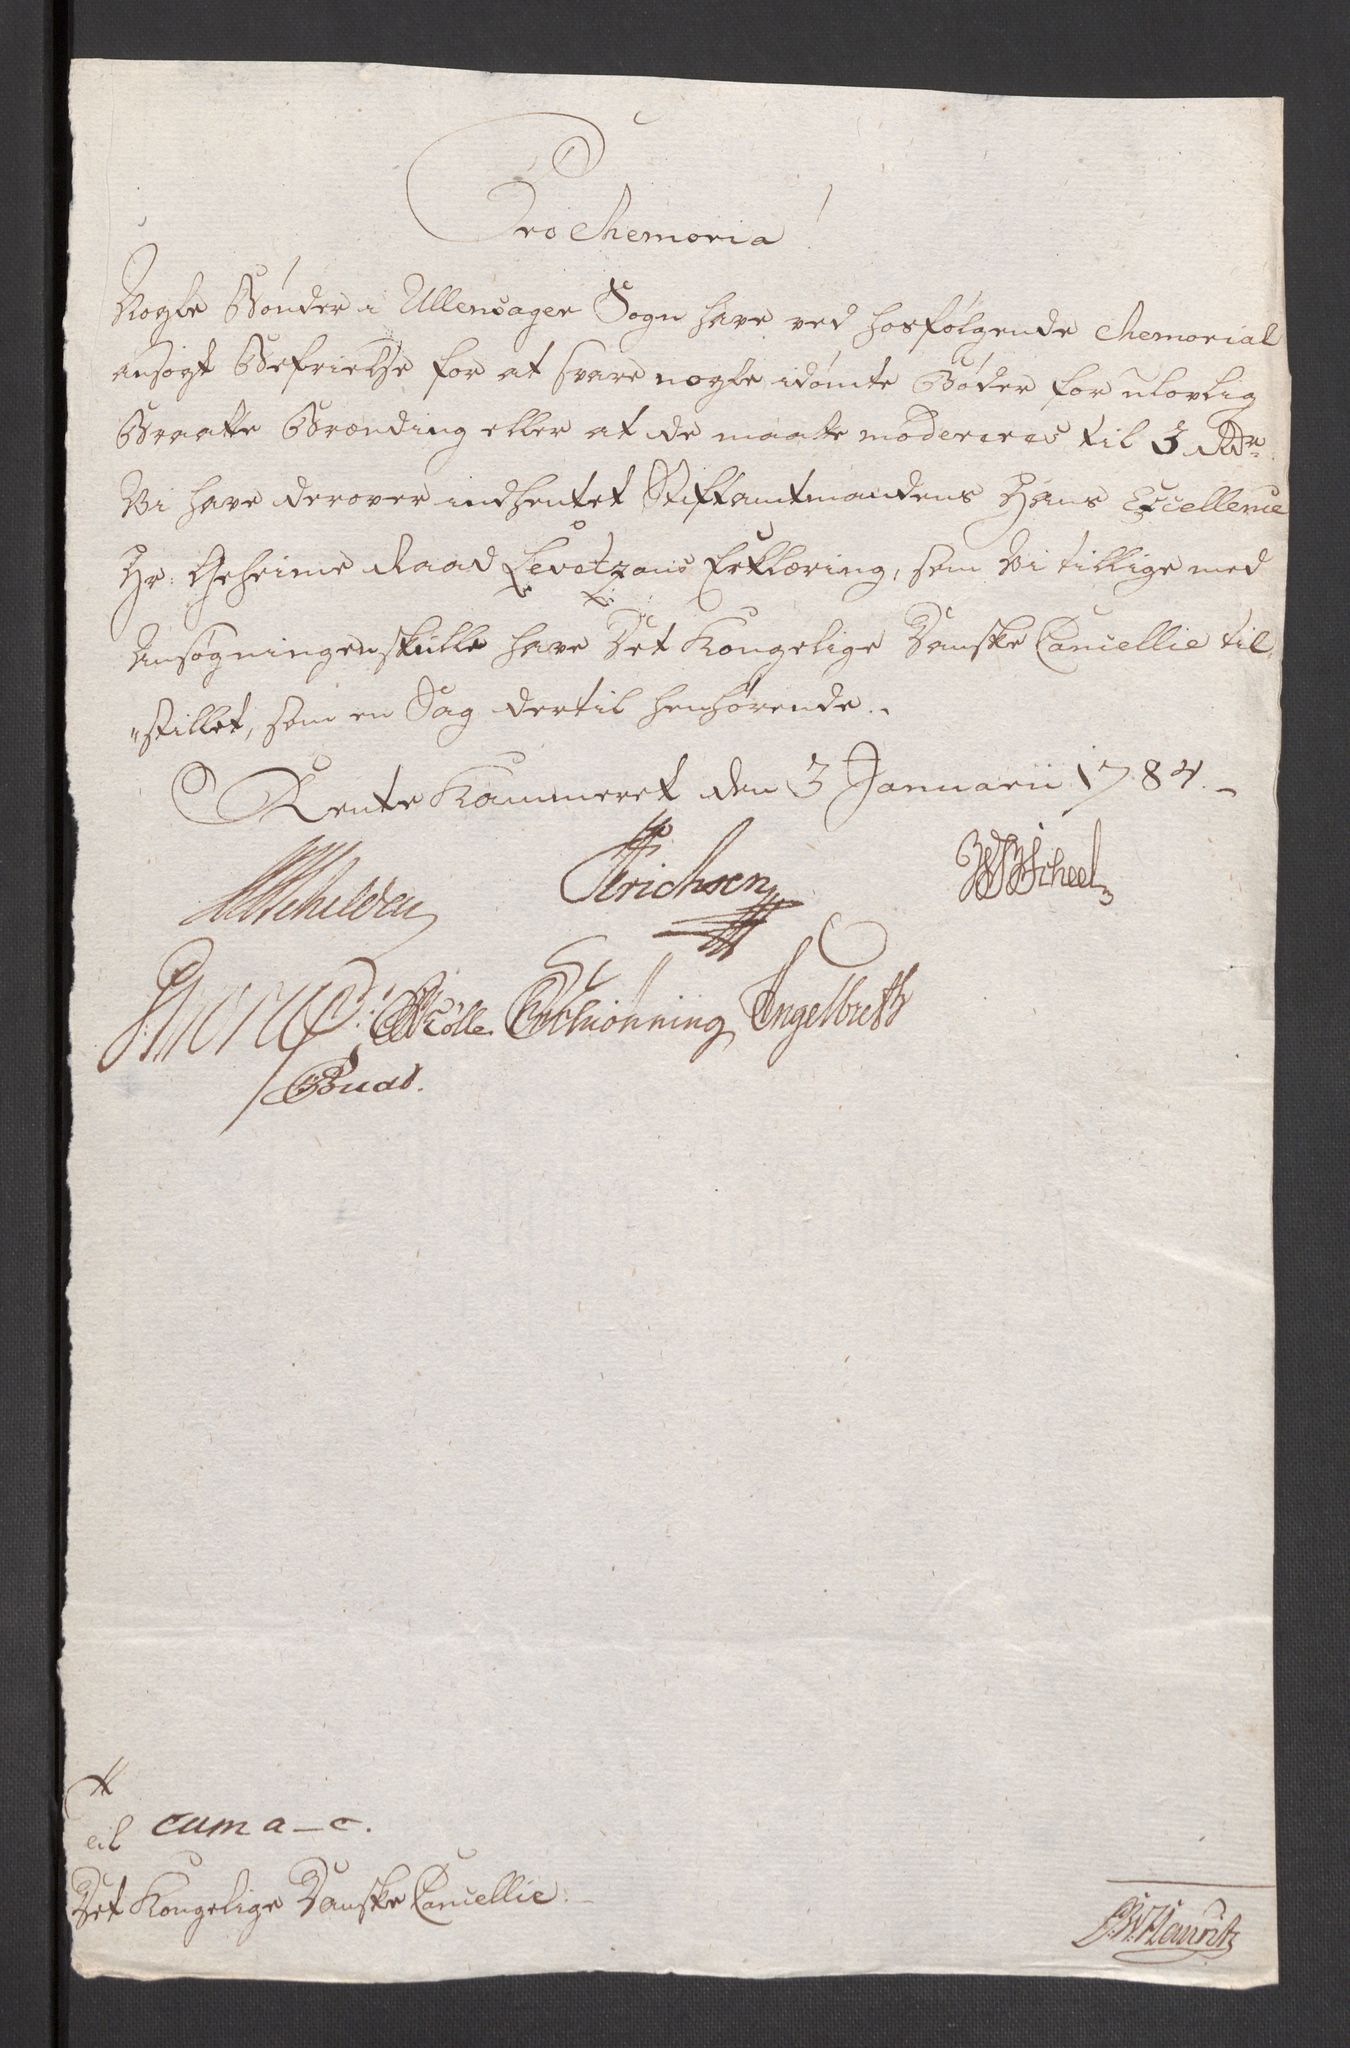 Pro Memoria!
Nogle Bønder i Ullensager Sogn have ved hosfølgende Memorial
ansøgt Befrielse for at svare nogle idømte Bøder for ulovlig
Braatte Brænding eller at de maatte modereres til 3 Rdr.
Vi have derover indhentet Stiftamtmandens Hans Excellence
Hr. Geheime Raad Levetzaus Erklæring, som Vi tillige med
Ansøgningen skulle have Det Kongelige Danske Cancellie til,
"stillet, som en Sag dertil henhørende.
Rente Kammeret den 3 Januarii 1784.
Schilden Erichsen Scheel
Müller Schiønning Engelbreth
til cum a-c.
Det Kongelige Danske Cancellie.
Lauritz